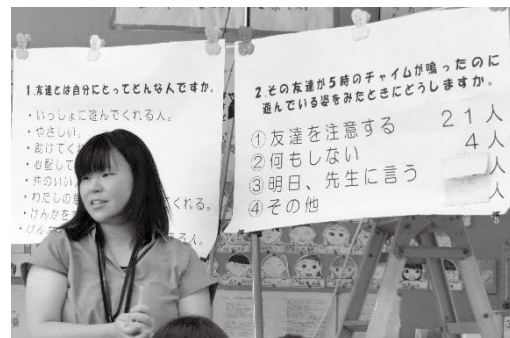 1.友達とは自分にとってどんなんですか。
・いっしょに遊んでくれる人。
・やさしい。
・助けてくれ
・心配して
・仲のいい
・わたしの意 くれる。
・けんかをす
・けんか る人。
2.その友達が5時のチャイムが鳴ったのに
遊んでいる姿をみたときにどうしますか。
①友達を注意する 21人
②何もしない 4人
③明日、先生に言う 人
④その他 人